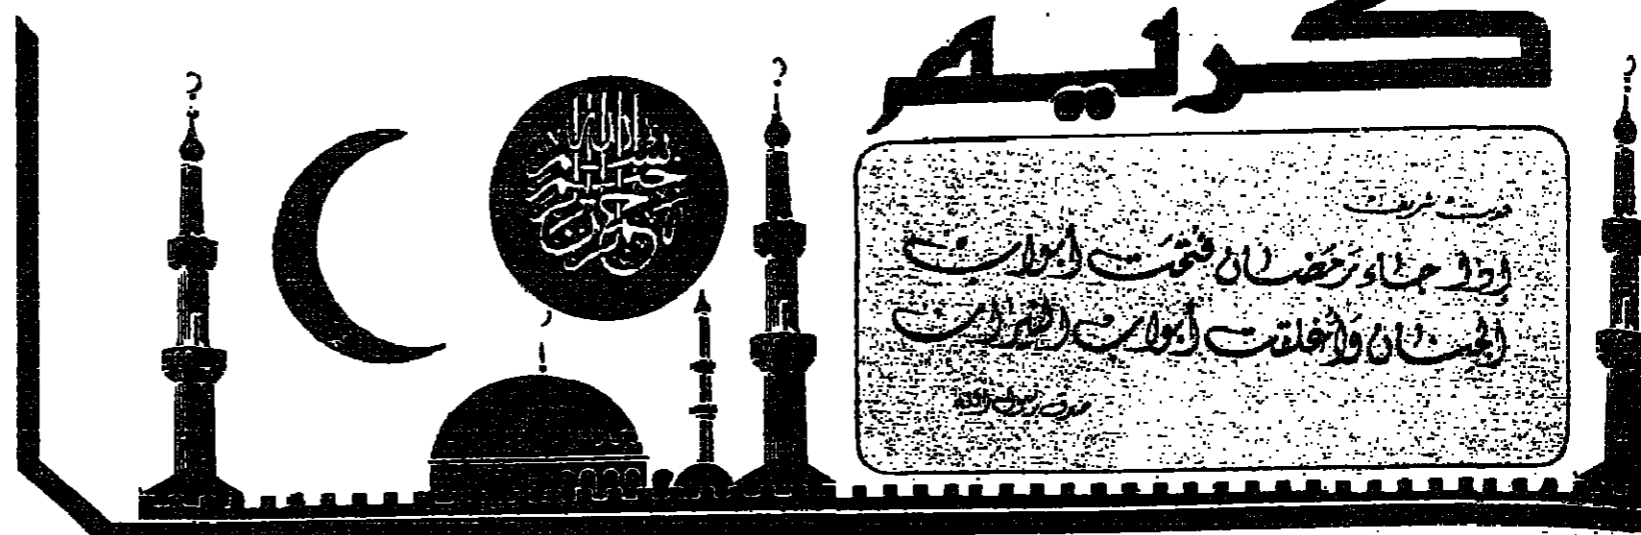 كريم
بسم الله الرحمن الرحيم
حديث شريف
إذا جاء رَمَضان فُتحَت أبواب
الجنان وَأغلقت أبواب النيران
صدق رسول الله